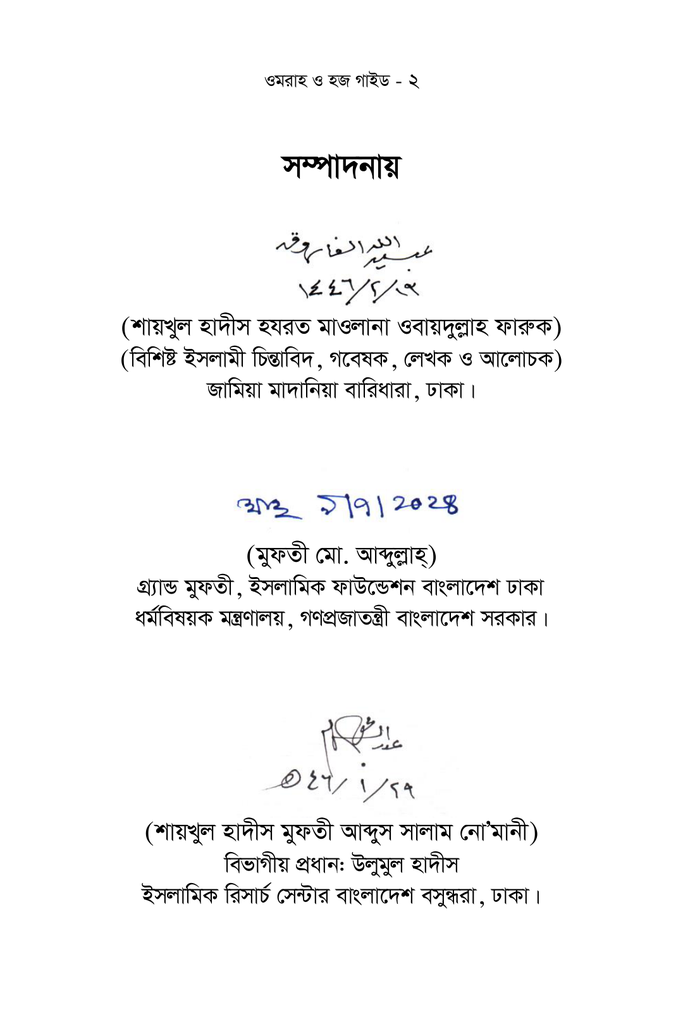 ওমরাহ ও হজ গাইড - ২
সম্পাদনায়
عبيد الله الفاروق
(শায়খুল হাদীস হযরত মাওলানা ওবায়দুল্লাহ ফারুক)
(বিশিষ্ট ইসলামী চিন্তাবিদ, গবেষক, লেখক ও আলোচক)
জামিয়া মাদানিয়া বারিধারা, ঢাকা।
(মুফতী মো. আব্দুল্লাহ্)
গ্র্যান্ড মুফতী, ইসলামিক ফাউন্ডেশন বাংলাদেশ ঢাকা
ধর্মবিষয়ক মন্ত্রণালয়, গণপ্রজাতন্ত্রী বাংলাদেশ সরকার।
(শায়খুল হাদীস মুফতী আব্দুস সালাম নো’মানী)
বিভাগীয় প্রধান: উলুমুল হাদীস
ইসলামিক রিসার্চ সেন্টার বাংলাদেশ বসুন্ধরা, ঢাকা।